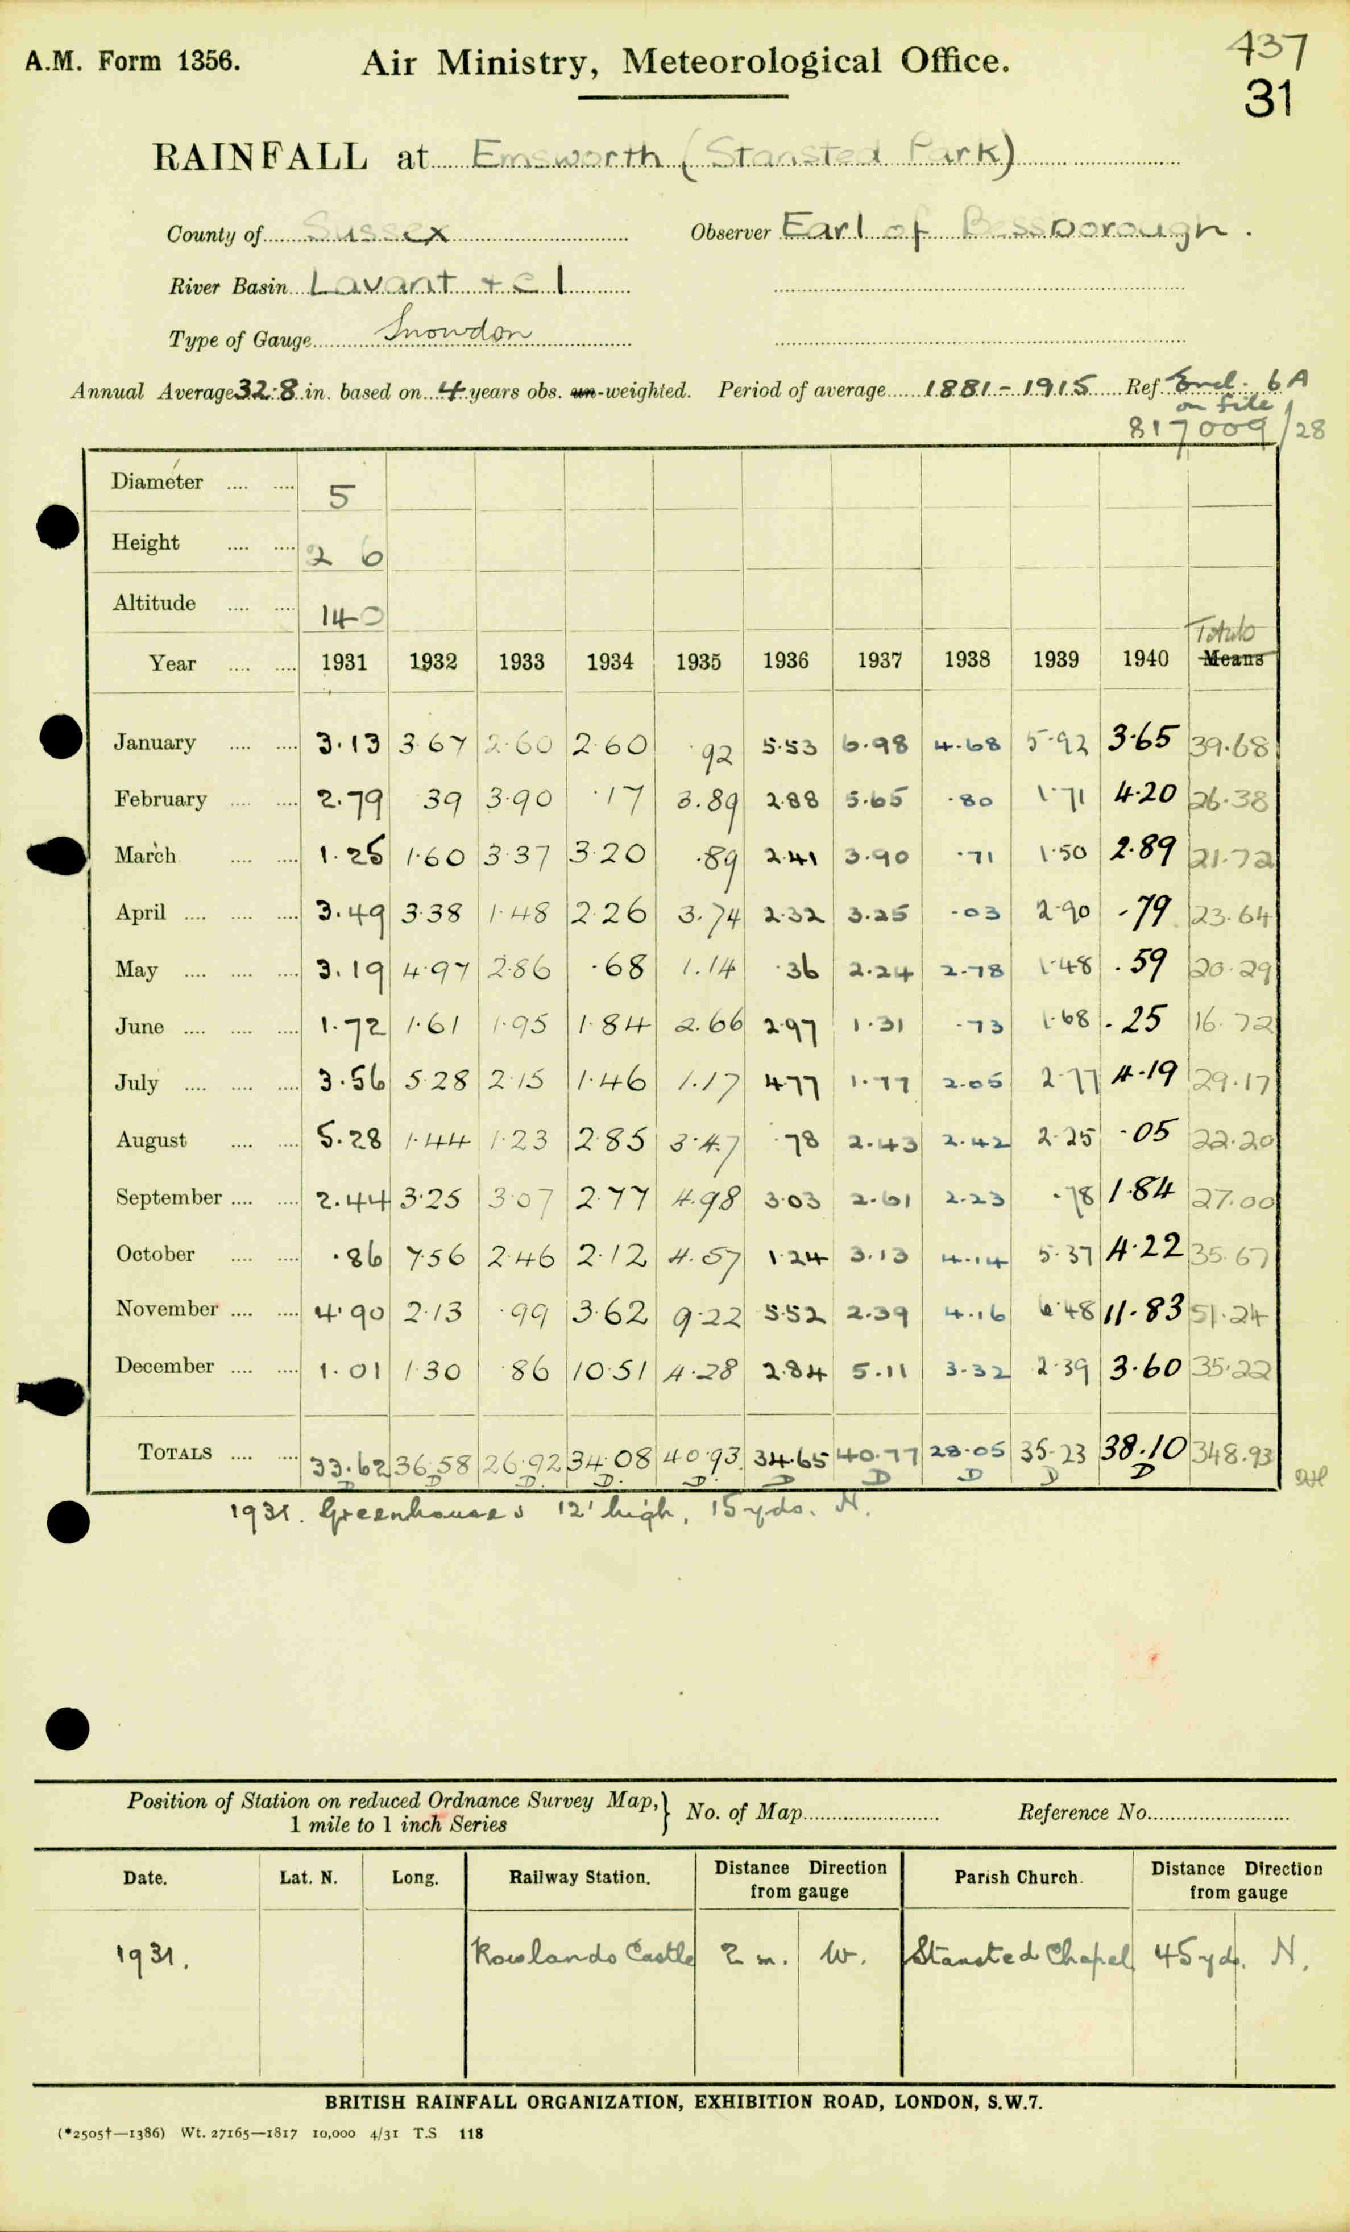 A.M. Form 1356.
Air Ministry, Meteorological Office.
437
31
RAINFALL at Emsworth (Stansted Park)
County of Sussex Observer Earl of Bessborough.
River Basin Lavant + c 1
Type of Gauge Snowdon
Annual Average 32.8 in. based on 4 years obs. un-weighted. Period of average 1881-1915 Ref. Encl. 6A
on file
817009/28
Diameter .... .... 5
Height .... .... 2 6
Altitude .... .... 140
Totals
Year .... .... 1931 1932 1933 1934 1935 1936 1937 1938 1939 1940 Means
January .... .... 3.13 3.67 2.60 2.60 .92 5.53 6.98 4.68 5.92 3.65 39.68
February .... .... 2.79 39 3.90 .17 3.89 2.88 5.65 .80 1.71 4.20 26.38
March .... .... 1.25 1.60 3.37 3.20 .89 2.41 3.90 .71 1.50 2.89 21.72
April .... .... .... 3.49 3.38 1.48 2.26 3.74 2.32 3.25 .03 2.90 .79 23.64
May .... .... .... 3.19 4.97 2.86 .68 1.14 .36 2.24 2.78 1.48 .59 20.29
June .... .... .... 1.72 1.61 1.95 1.84 2.66 2.97 1.31 .73 1.68 .25 16.72
July .... .... .... 3.56 5.28 2.15 1.46 1.17 4.77 1.77 2.05 2.77 4.19 29.17
August .... .... 5.28 1.44 1.23 2.85 3.47 .78 2.43 2.42 2.25 .05 22.20
September .... .... 2.44 3.25 3.07 2.77 4.98 3.03 2.61 2.23 .78 1.84 27.00
October .... .... .86 7.56 2.46 2.12 4.57 1.24 3.13 4.14 5.37 4.22 35.67
November .... .... 4.90 2.13 .99 3.62 9.22 5.52 2.39 4.16 6.48 11.83 51.24
December .... .... 1.01 1.30 .86 10.51 4.28 2.84 5.11 3.32 2.39 3.60 35.22
TOTALS .... .... 33.62 36.58 26.92 34.08 40.93 34.65 40.77 28.05 35.23 38.10 348.93
D D D. D. D. D D D D D
1931. Greenhouses 12' high, 15 yds. N.
Position of Station on reduced Ordnance Survey Map, } No. of Map Reference No.
1 mile to 1 inch Series
Date. Lat. N. Long. Railway Station. Distance Direction from gauge Parish Church. Distance Direction from gauge
1931. Rowlands Castle 2 m. W. Stansted Chapel 45 yds. N.
BRITISH RAINFALL ORGANIZATION, EXHIBITION ROAD, LONDON, S.W.7.
(*2505†—1386) Wt. 27165—1817 10,000 4/31 T.S 118